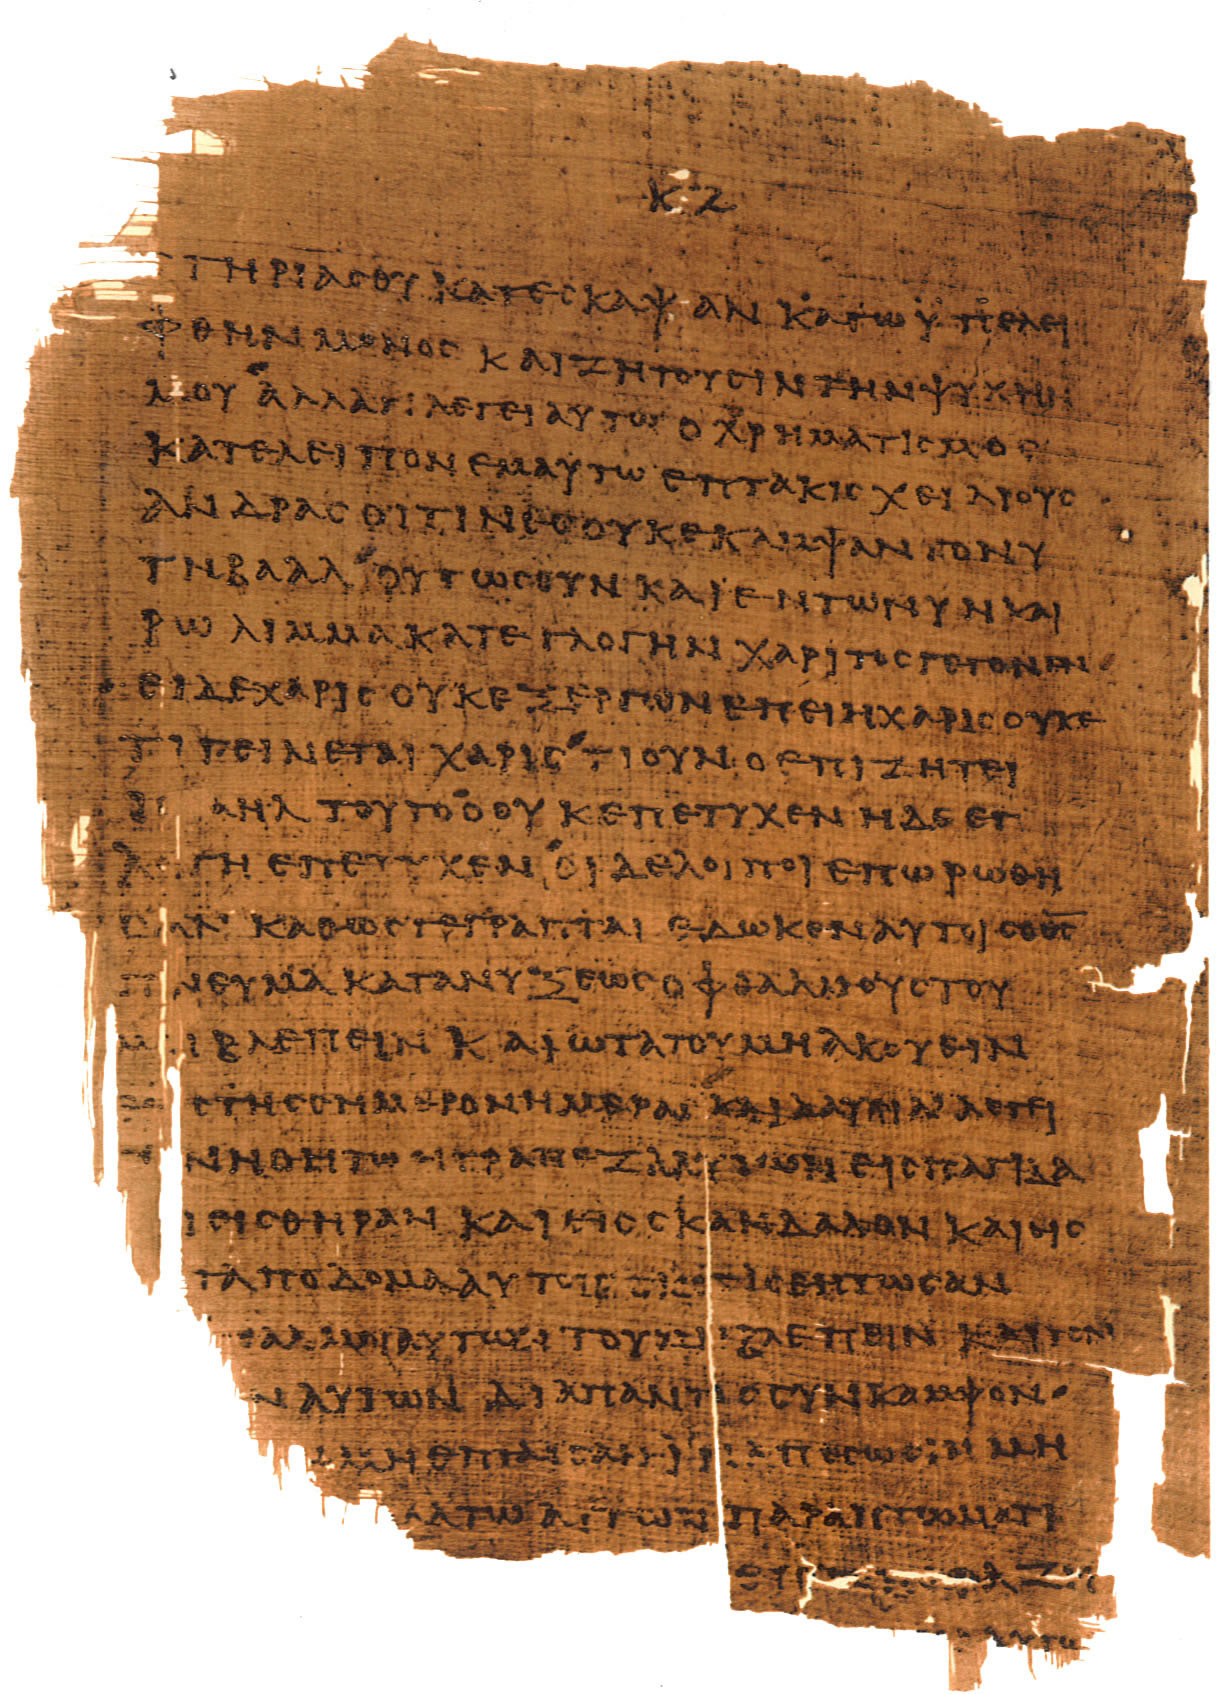 ΚΖ
ΤΗΡΙΑ ΣΟΥ ΚΑΤΕΣΚΑΨΑΝ ΚΑΓΩ ΫΠΕΛΕΙ
ΦΘΗΝ ΜΟΝΟΣ ΚΑΙ ΖΗΤΟΥΣΙΝ ΤΗΝ ΨΥΧΗΝ
ΜΟΥ ΑΛΛΑ ΤΙ ΛΕΓΕΙ ΑΥΤΩ Ο ΧΡΗΜΑΤΙΣΜΟΣ
ΚΑΤΕΛΕΙΠΟΝ ΕΜΑΥΤΩ ΕΠΤΑΚΙΣΧΕΙΛΙΟΥΣ
ΑΝΔΡΑΣ ΟΙΤΙΝΕΣ ΟΥΚ ΕΚΑΜΨΑΝ ΓΟΝΥ
ΤΗ ΒΑΑΛ ΟΥΤΩΣ ΟΥΝ ΚΑΙ ΕΝ ΤΩ ΝΥΝ ΚΑΙ
ΡΩ ΛΙΜΜΑ ΚΑΤ ΕΓΛΟΓΗΝ ΧΑΡΙΤΟΣ ΓΕΓΟΝΕΝ
ΕΙ ΔΕ ΧΑΡΙΣ ΟΥΚ ΕΞ ΕΡΓΩΝ ΕΠΕΙ Η ΧΑΡΙΣ ΟΥΚΕ
ΤΙ ΓΕΙΝΕΤΑΙ ΧΑΡΙΣ ΤΙ ΟΥΝ Ο ΕΠΙΖΗΤΕΙ
ΑΗΛ ΤΟΥΤΟ Ο ΟΥΚ ΕΠΕΤΥΧΕΝ Η ΔΕ ΕΓ
ΛΟΓΗ ΕΠΕΤΥΧΕΝ ΟΙ ΔΕ ΛΟΙΠΟΙ ΕΠΩΡΩΘΗ
ΣΑΝ ΚΑΘΩΣ ΓΕΓΡΑΠΤΑΙ ΕΔΩΚΕΝ ΑΥΤΟΙΣ Ο Θ̅Σ̅
ΠΝΕΥΜΑ ΚΑΤΑΝΥΞΕΩΣ ΟΦΘΑΛΜΟΥΣ ΤΟΥ
ΜΗ ΒΛΕΠΕΙΝ ΚΑΙ ΩΤΑ ΤΟΥ ΜΗ ΑΚΟΥΕΙΝ
ΤΗΣ ΣΗΜΕΡΟΝ ΗΜΕΡΑΣ ΚΑΙ ΔΑΥΕΙΔ ΛΕΓΕΙ
ΝΗΘΗΤΩ Η ΤΡΑΠΕΖΑ ΑΥΤΩΝ ΕΙΣ ΠΑΓΙΔΑ
ΕΙΣ ΘΗΡΑΝ ΚΑΙ ΕΙΣ ΣΚΑΝΔΑΛΟΝ ΚΑΙ ΕΙΣ
ΤΑΠΟΔΟΜΑ ΑΥΤΟΙΣ ΣΚΟΤΙΣΘΗΤΩΣΑΝ
ΘΑΛΜΟΙ ΑΥΤΩΝ ΤΟΥ ΜΗ ΒΛΕΠΕΙΝ ΚΑΙ ΤΟΝ
Ν ΑΥΤΩΝ ΔΙΑ ΠΑΝΤΟΣ ΣΥΝΚΑΜΨΟΝ
ΜΗ ΕΠΤΑΙΣΑΝ ΙΝΑ ΠΕΣΩΣΙΝ ΜΗ
ΑΛΛΑ ΤΩ ΑΥΤΩΝ ΠΑΡΑΠΤΩΜΑΤΙ
ΑΥΤΩ